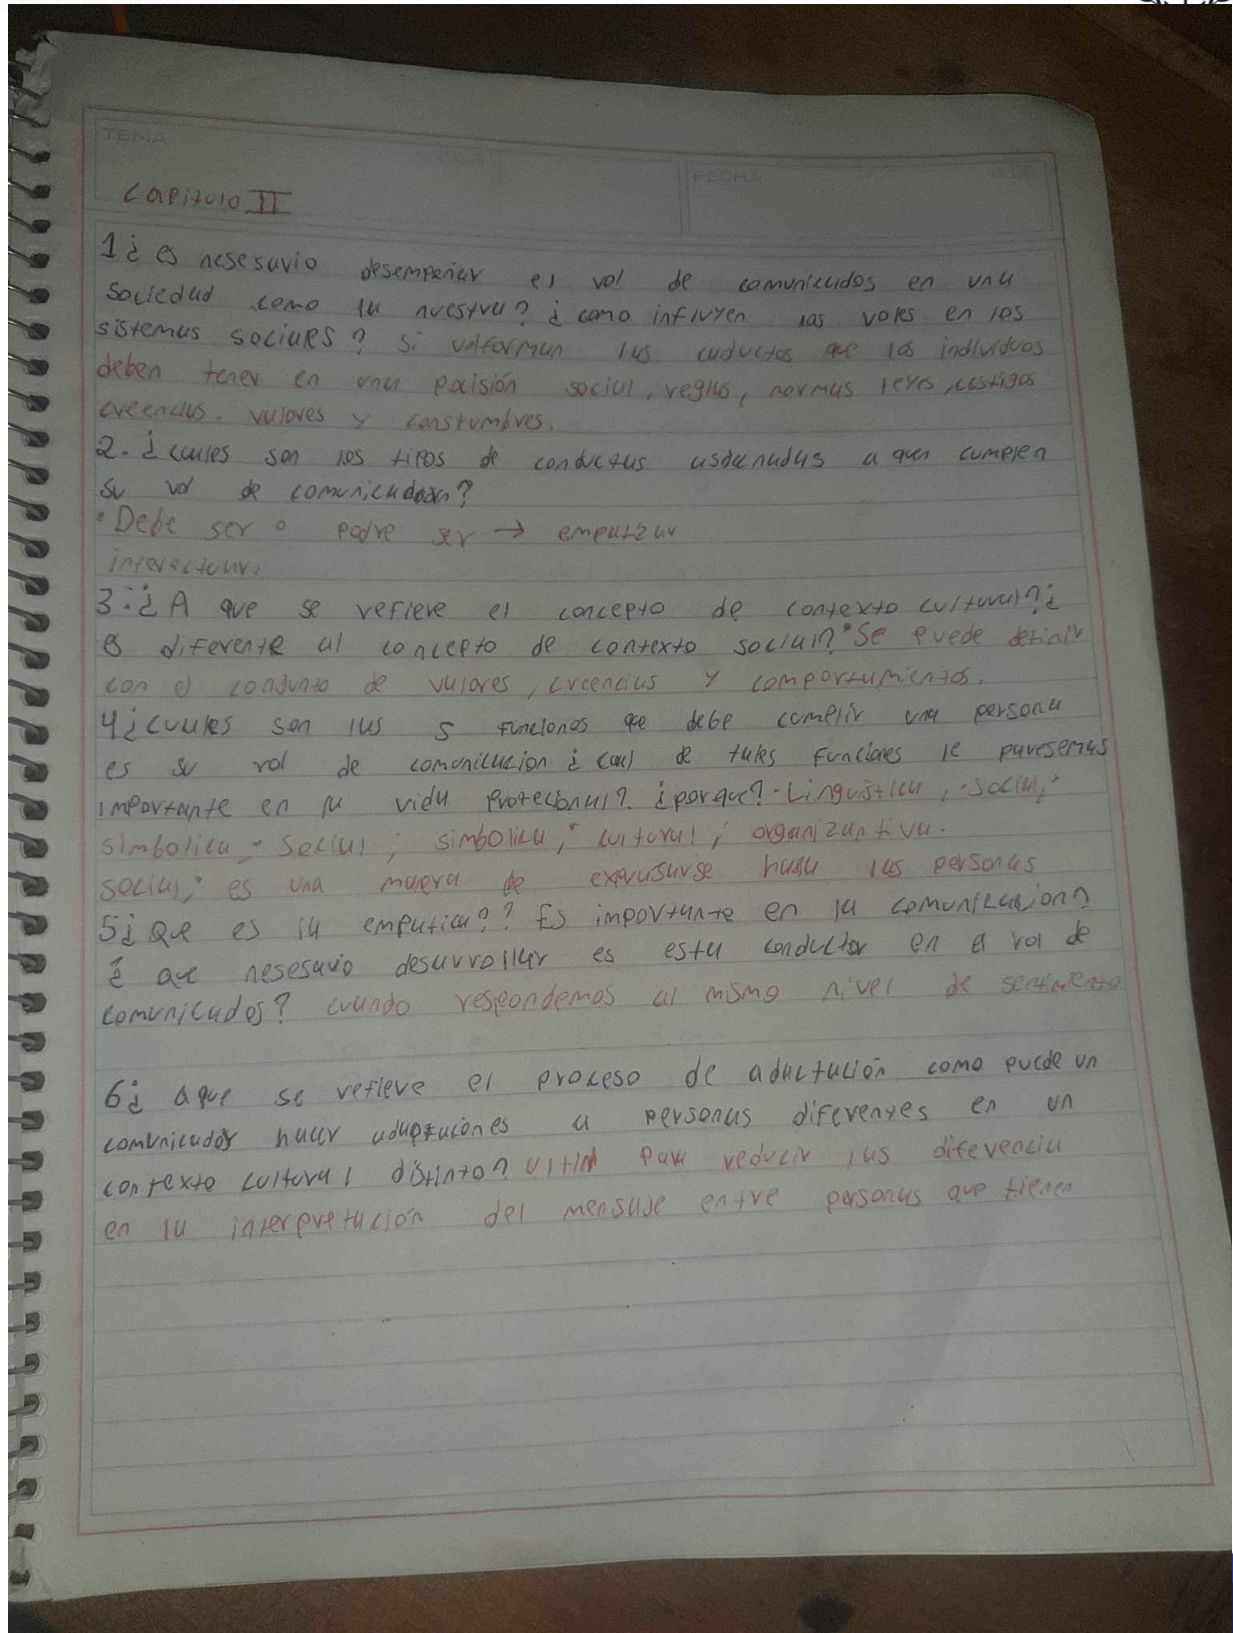 TEMA
FECHA
Capitulo II
1¿ es nesesario desempeñar el rol de comunicados en una
Sociedad como la nuestra? ¿ como influyen las roles en los
sistemas sociales? Si unforman las cuductos que los individuos
deben tener en una pocisión social, reglas, normas leyes, castigos
creencias. valores y constumbres.
2. ¿ cuales son los tipos de conductas asdenadas a quen cumplen
su rol de comunicadoan?
• Debe ser o podre ser → empatizar
interactuar.
3.¿ A que se refiere el concepto de contexto cultural? ¿
es diferente al concepto de contexto social? • Se puede definir
con el conjunto de valores, creencias y comportamientos.
4¿ cuales son las 5 funciones que debe complir una persona
es su rol de comunicacion ¿ cual de tales funciones le pareserias
importante en tu vida profecional? ¿porque? · Linguistica, · social, ·
simbolica, · Social; simbolica; · cultural; organizantiva.
social; es una maera de exprusarse hasa las personas
5¿ Que es la empatica?? Es importante en la comunicacion?
¿ que nesesario desarrollar es esta conductor en el rol de
comunicados? cuando respondemos al mismo nivel de sentimiento
6¿ a que se refieve el proceso de adactación como puede un
comunicador hacer adaptaciones a personas diferenyes en un
contexto cultural distinto? para reducir las diferencia
en la interpretación del mensaje entre personas que tienen